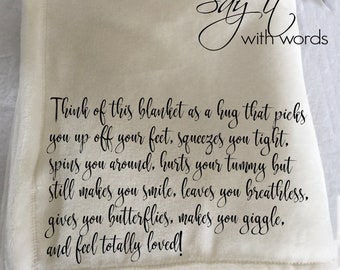 say it
with words
Think of this blanket as a hug that picks
you up off your feet, squeezes you tight,
spins you around, hurts your tummy but
still makes you smile, leaves you breathless,
gives you butterflies, makes you giggle,
and feel totally loved!